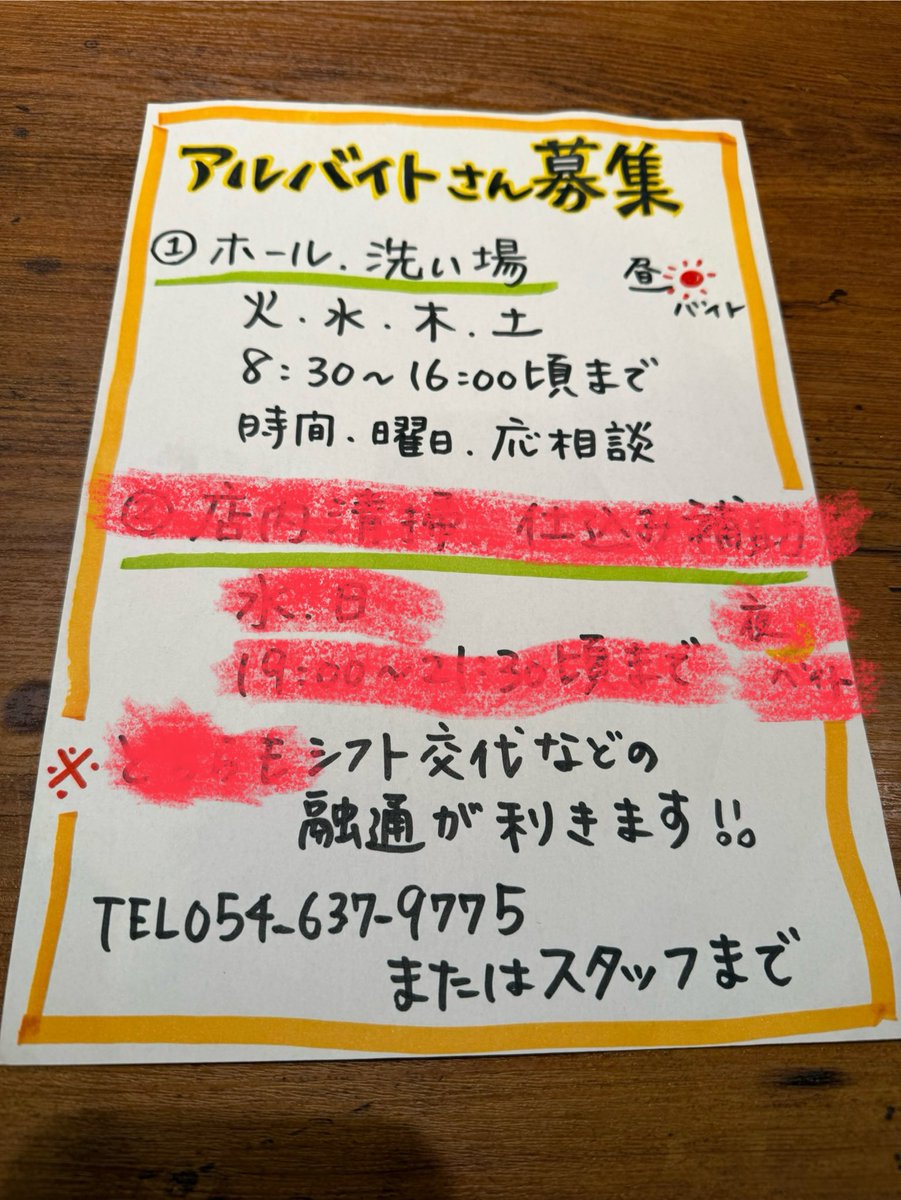 アルバイトさん募集
① ホール.洗い場
昼
バイト
火.水.木.土
8:30~16:00頃まで
時間.曜日.応相談
② 店内清掃 仕込み補助
水.日
夜
バイト
19:00~21:30頃まで
※ どちらもシフト交代などの
融通が利きます!!
TEL054-637-9775
またはスタッフまで